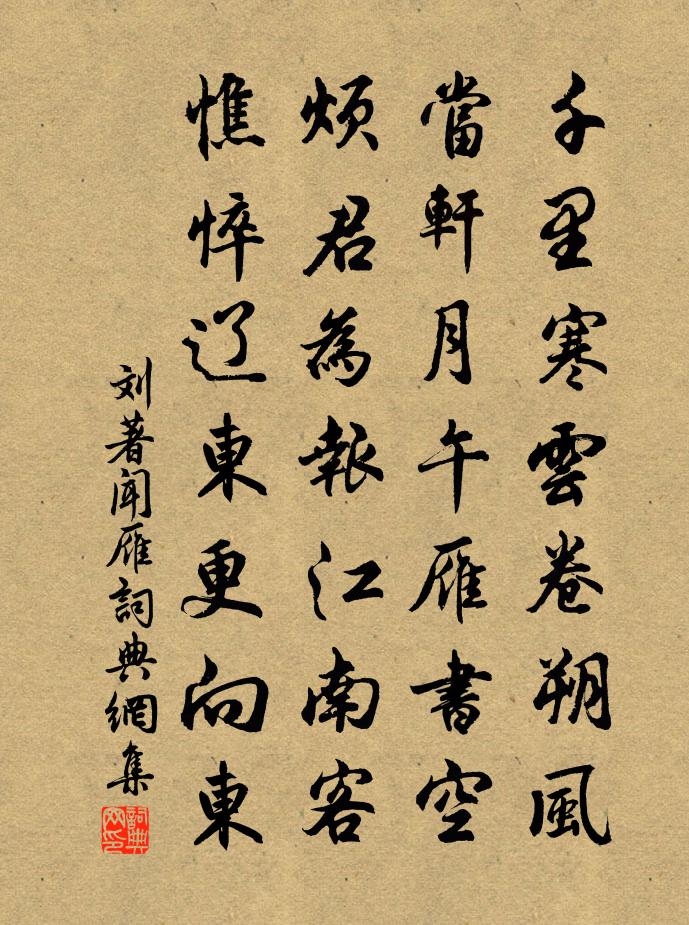 千里寒雲卷朔風
當軒月午雁書空
煩君為報江南客
憔悴辽東更向東
刘著聞雁詞典網集
詞典網印